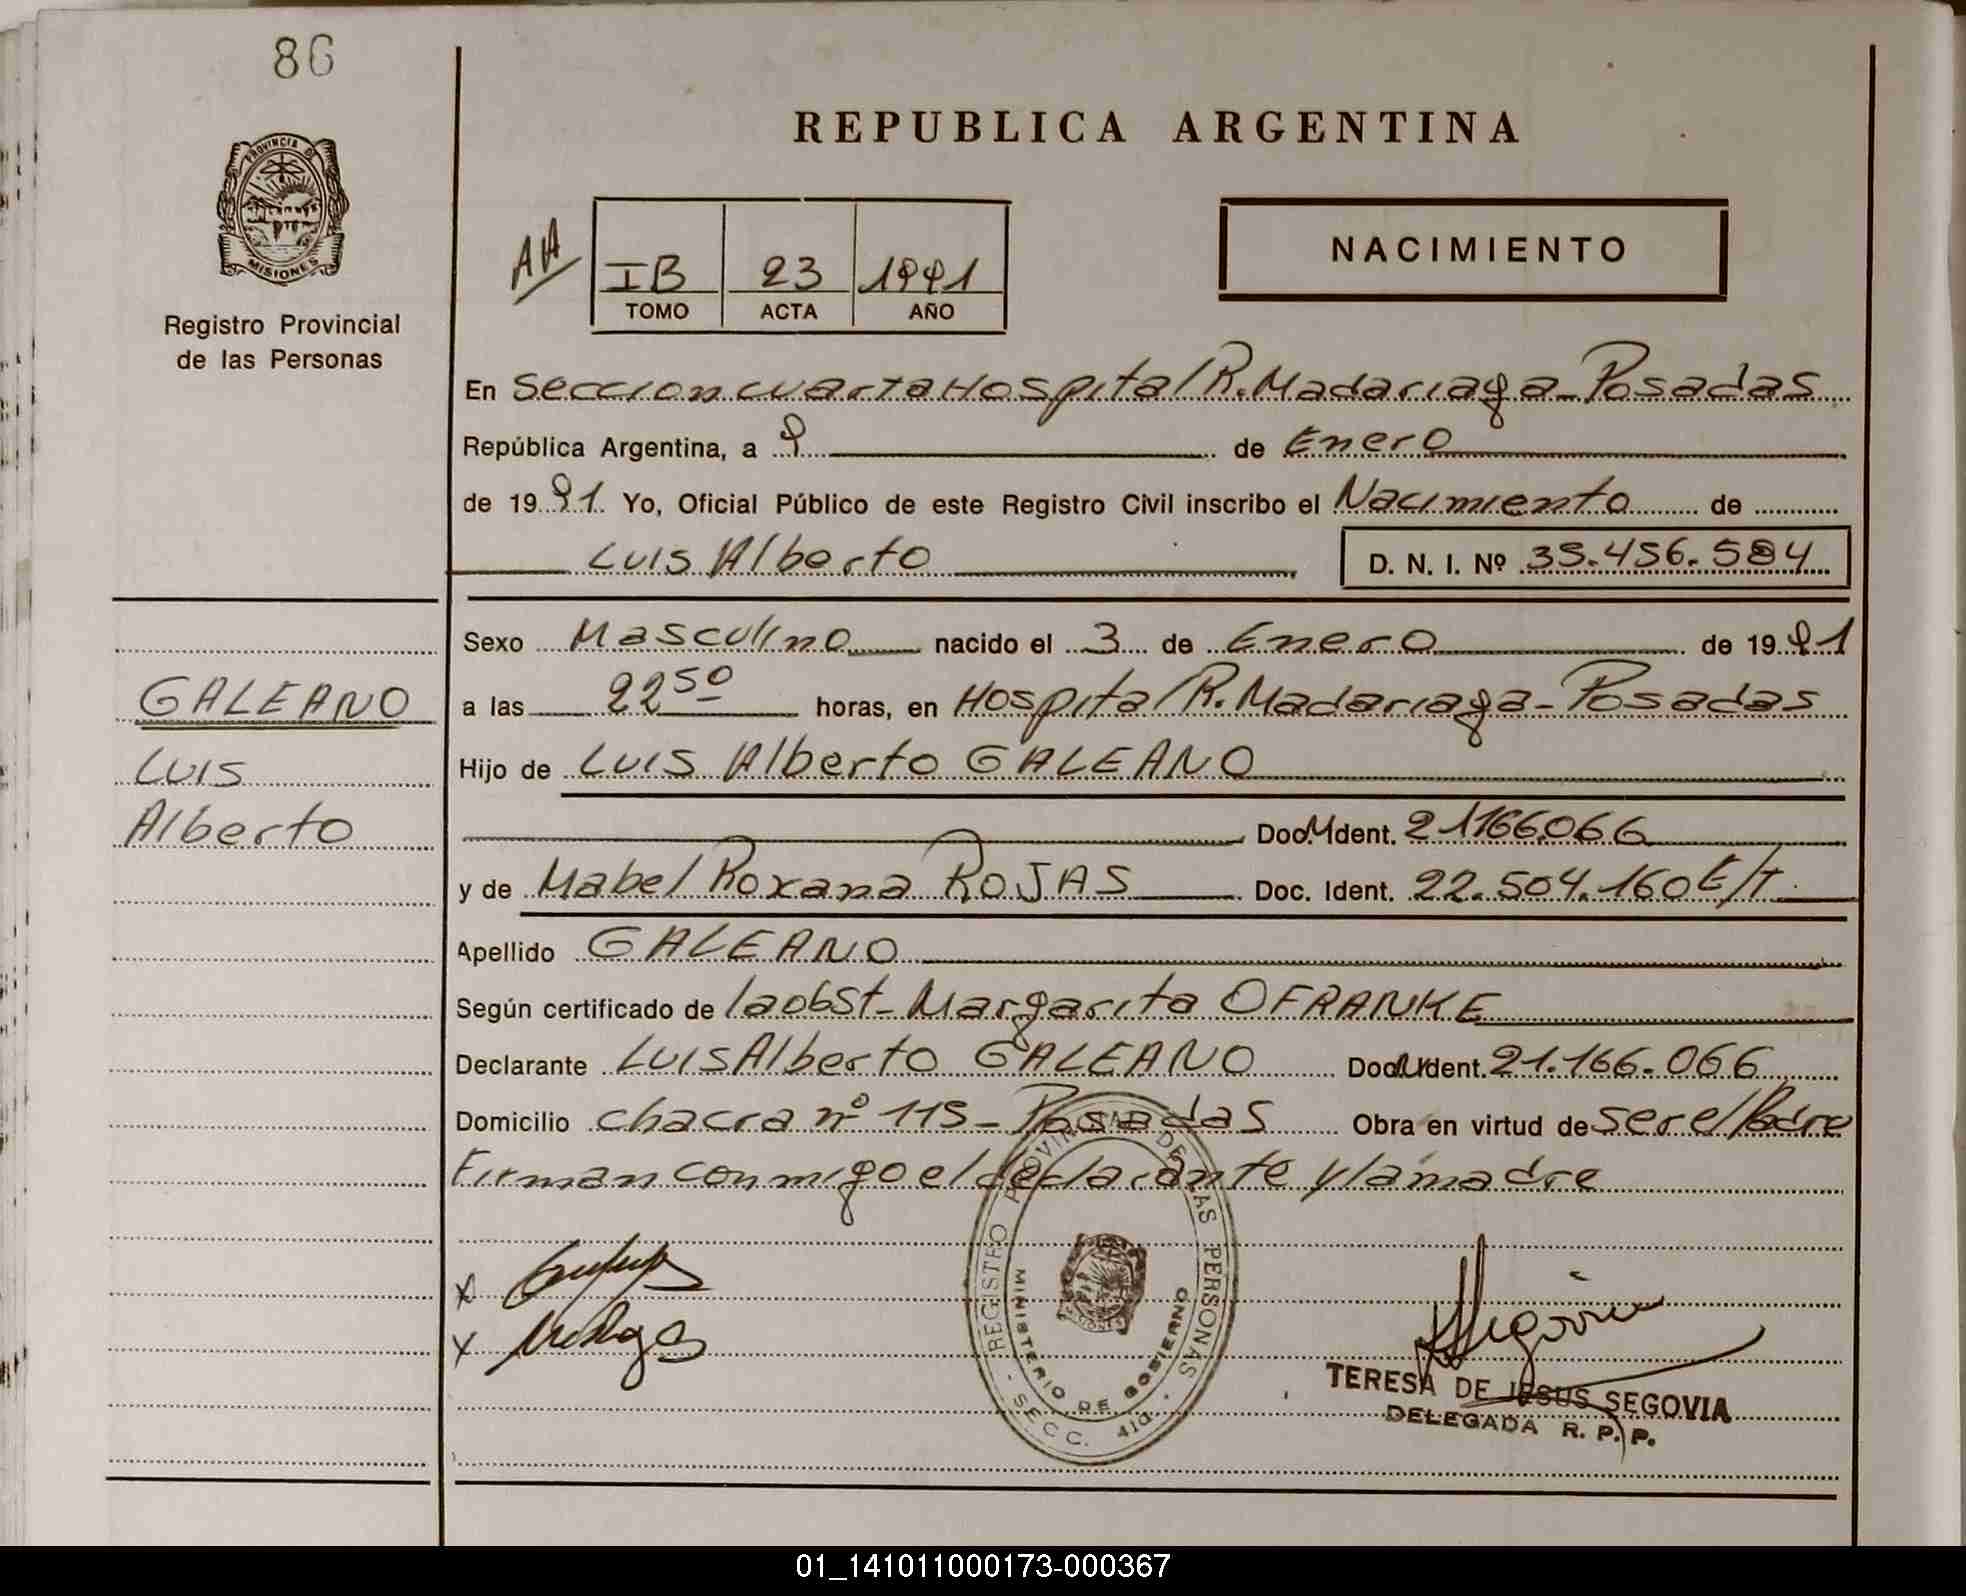 86
REPUBLICA ARGENTINA
PROVINCIA DE
MISIONES
Registro Provincial
de las Personas
AA
IB 23 1991
TOMO ACTA AÑO
NACIMIENTO
En Seccion cuarta Hospital R. Madariaga - Posadas
República Argentina, a 9 de Enero
de 1991 Yo, Oficial Público de este Registro Civil inscribo el Nacimiento de
Luis Alberto D. N. I. Nº 35.456.584
Sexo Masculino nacido el 3 de Enero de 1991
a las 22 50 horas, en Hospital R. Madariaga - Posadas
GALEANO
Luis
Alberto
Hijo de Luis Alberto GALEANO
Doc. Ident. 21166066
y de Mabel Roxana ROJAS Doc. Ident. 22.504.160 E/T.
Apellido GALEANO
Según certificado de la obst - Margarita O FRANKE
Declarante Luis Alberto GALEANO Doc. Ident. 21.166.066
Domicilio chacra nº 115 - Posadas Obra en virtud de ser el Padre
Firman conmigo el declarante y la madre
x
x
REGISTRO PROVINCIAL DE LAS PERSONAS - SECC. 4ta.
MINISTERIO DE GOBIERNO
Segovia
TERESA DE JESUS SEGOVIA
DELEGADA R. P. P.
01_141011000173-000367